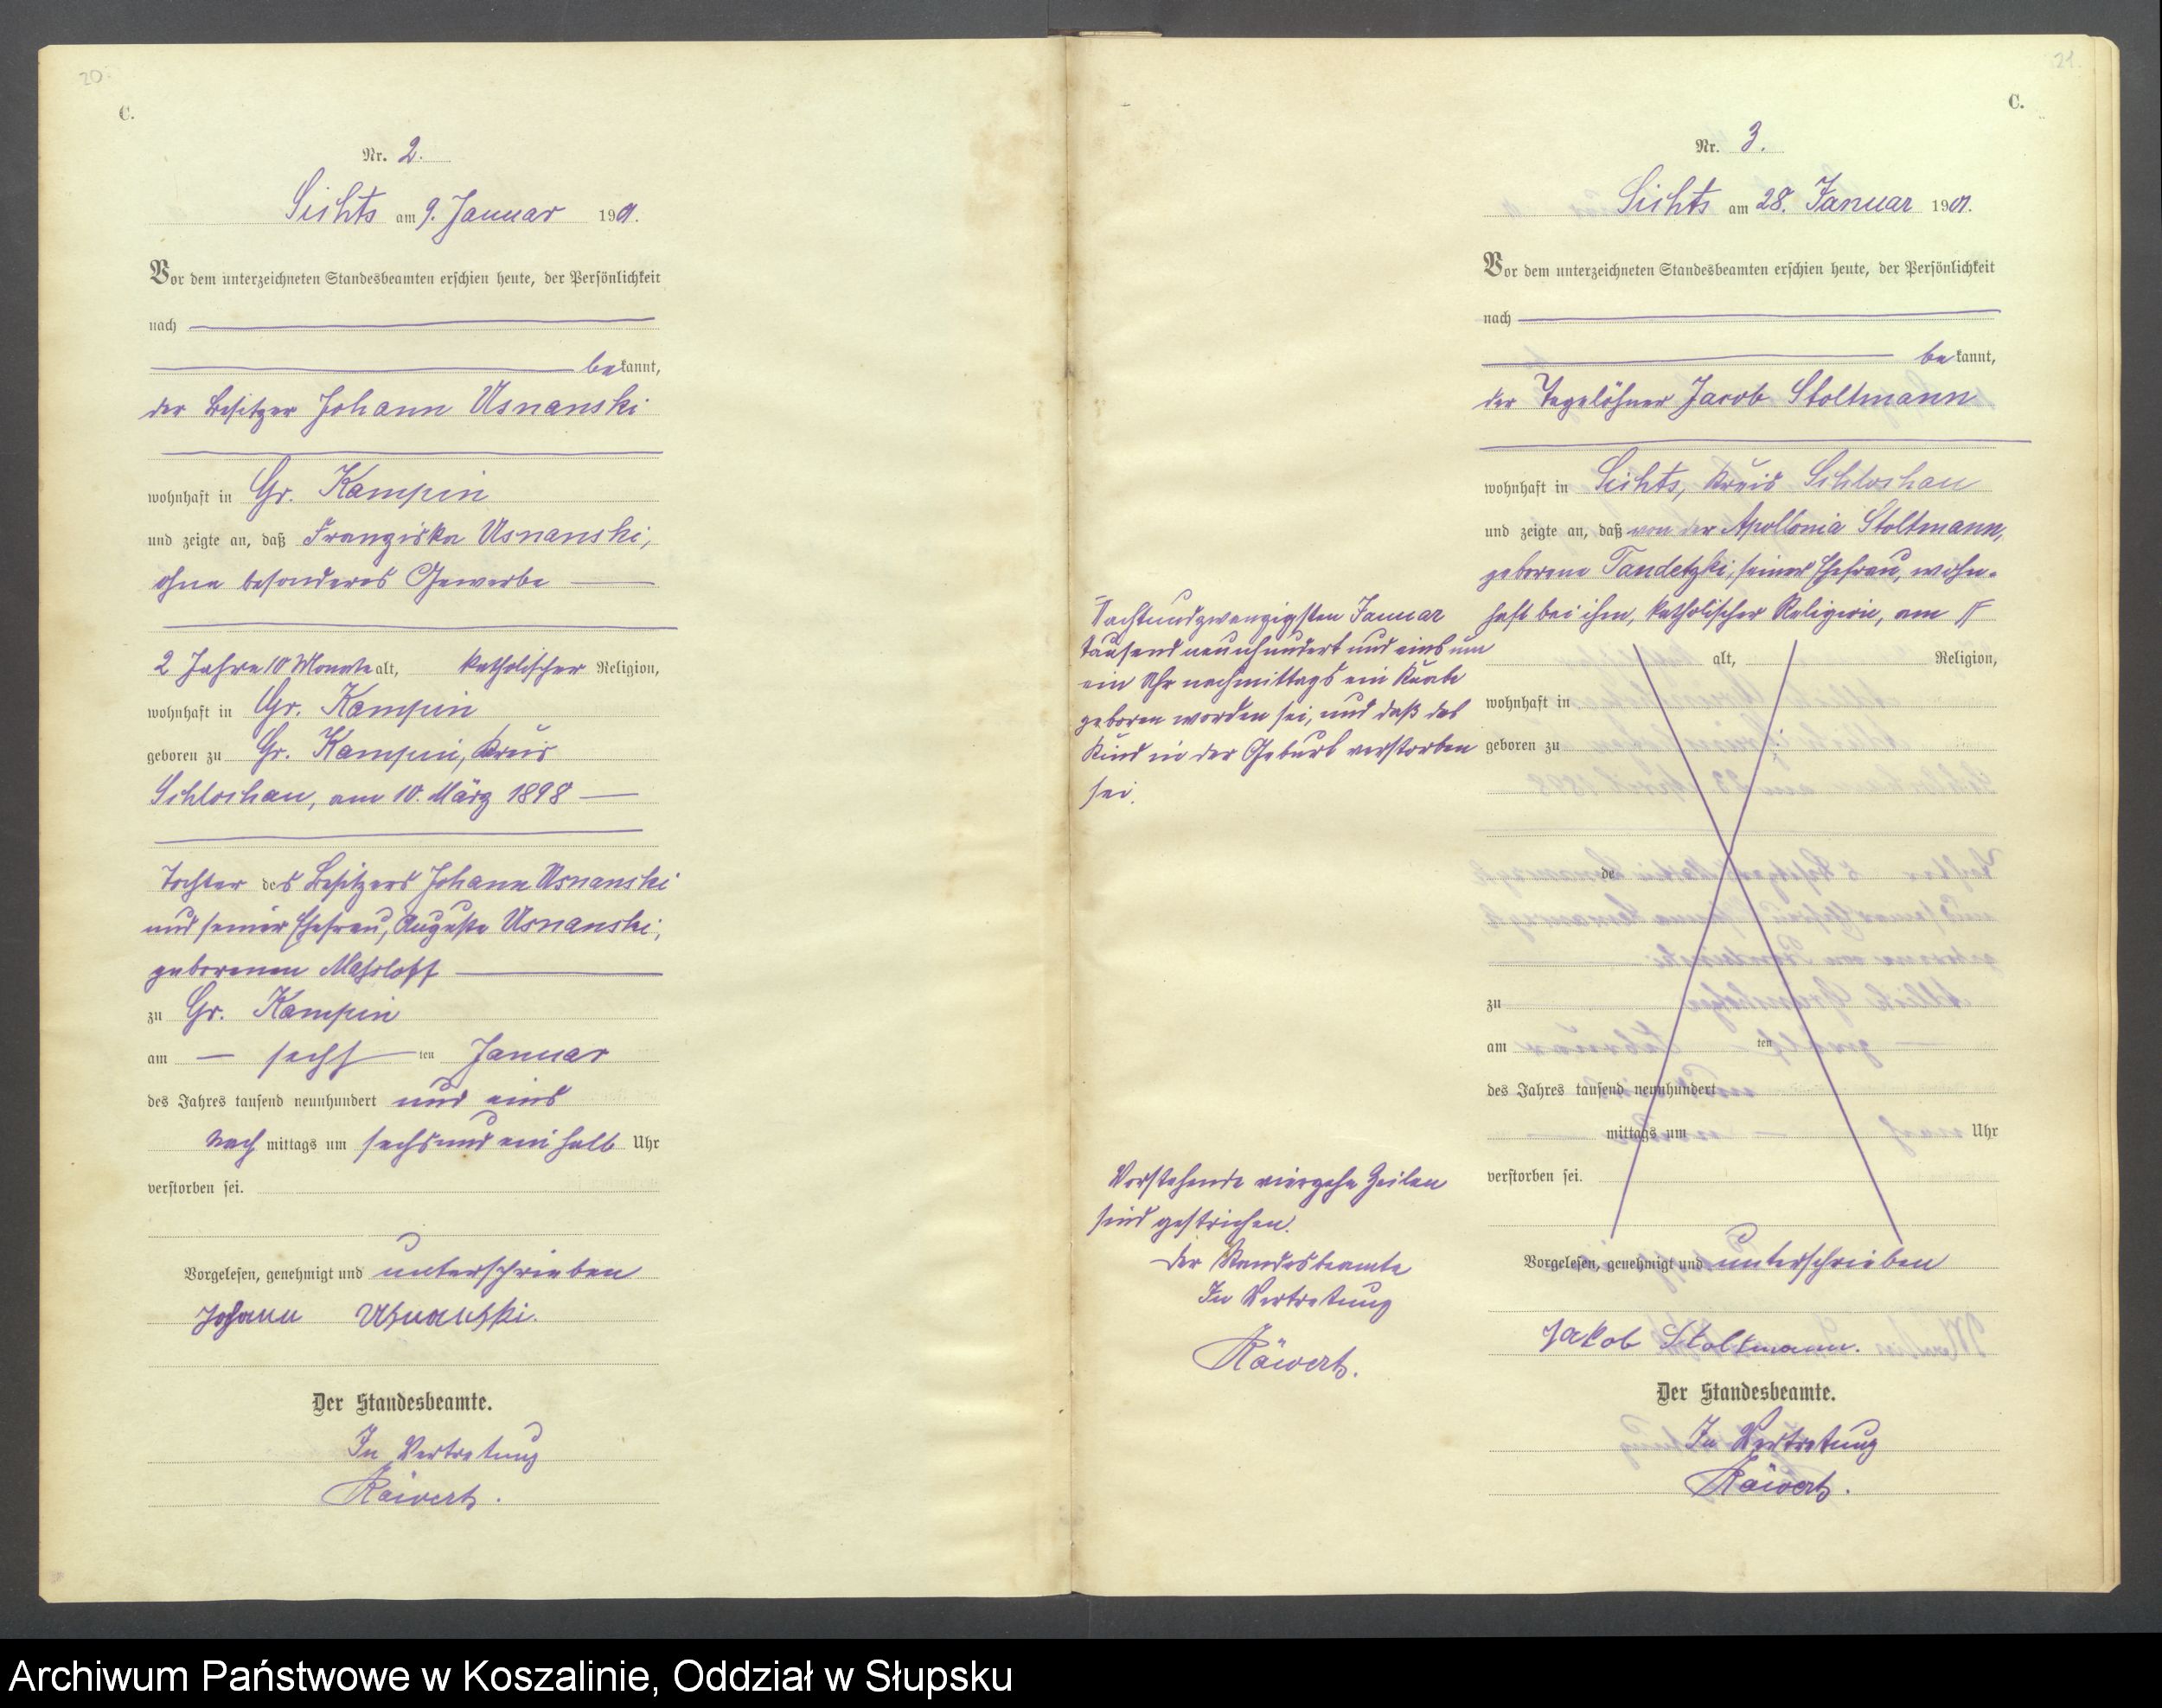 20.
C.
Nr. 2.
Lichts am 9. Januar 1901.
Vor dem unterzeichneten Standesbeamten erschien heute, der Persönlichkeit
nach
bekannt,
der Besitzer Johann Usnanski
wohnhaft in Gr. Kampin
und zeigte an, daß Franziska Usnanski,
ohne besonderes Gewerbe
2 Jahre 10 Monate alt, katholischer Religion,
wohnhaft in Gr. Kampin
geboren zu Gr. Kampin, Kreis
Schlochau, am 10. März 1898
Tochter des Besitzers Johann Usnanski
und seiner Ehefrau, Auguste Usnanski,
geborenen
zu Gr. Kampin
am sechsten Januar
des Jahres tausend neunhundert und eins
Nachmittags um sechs und ein halb Uhr
verstorben sei.
Vorgelesen, genehmigt und unterschrieben
Johann Usnanski.
Der Standesbeamte.
In Vertretung
21.
C.
Nr. 3.
Lichts am 28. Januar 1901.
Vor dem unterzeichneten Standesbeamten erschien heute, der Persönlichkeit
nach
bekannt,
der Tagelöhner Jacob Stoltmann
wohnhaft in Lichts, Kreis Schlochau
und zeigte an, daß von der Apollonia Stoltmann,
geborene Tandetzki, seiner Ehefrau, wohn-
haft bei ihm, katholischer Religion, am
achtundzwanzigsten Januar
tausend neunhundert und eins um
ein Uhr nachmittags ein Knabe
geboren worden sei, und daß das
Kind in der Geburt verstorben
sei.
alt, Religion,
wohnhaft in
geboren zu
de
zu
am ten
des Jahres tausend neunhundert
mittags um Uhr
verstorben sei.
Vorstehende vierzehn Zeilen
sind gestrichen.
Der Standesbeamte
In Vertretung
Vorgelesen, genehmigt und unterschrieben
Jakob Stoltmann.
Der Standesbeamte.
In Vertretung
Archiwum Państwowe w Koszalinie, Oddział w Słupsku